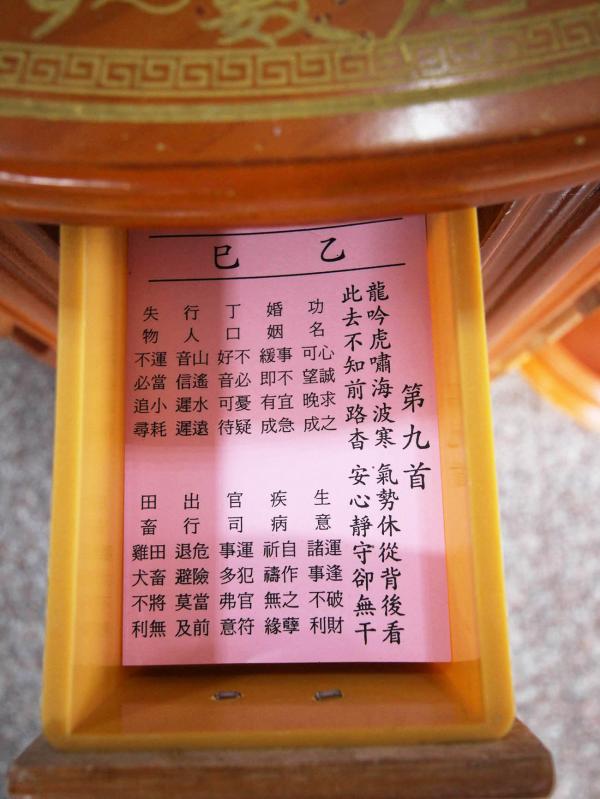 乙巳
第九首
龍吟虎嘯海波寒 氣勢休從背後看
此去不知前路杳 安心靜守卻無干
功名
心誠求之
可望晚成
婚姻
事不宜急
緩即有成
丁口
不必憂疑
好音可待
行人
山遙水遠
音信遲遲
失物
運當小耗
不必追尋
生意
運逢破財
諸事不利
疾病
自作之孽
祈禱無緣
官司
運犯官符
事多弗意
出行
危險當前
退避莫及
田畜
田畜將無
雞犬不利